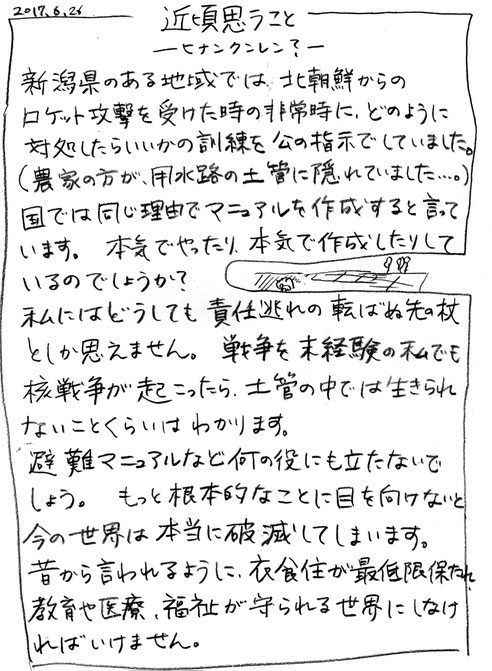 2017.6.26
近頃思うこと
―ヒナンクンレン?―
新潟県のある地域では、北朝鮮からの
ロケット攻撃を受けた時の非常時に、どのように
対処したらいいかの訓練を公の指示でしていました。
(農家の方が、用水路の土管に隠れていました…。)
国では同じ理由でマニュアルを作成すると言って
います。 本気でやったり、本気で作成したりして
いるのでしょうか?
私にはどうしても責任逃れの転ばぬ先の杖
としか思えません。 戦争を未経験の私でも
核戦争が起こったら、土管の中では生きられ
ないことくらいはわかります。
避難マニュアルなど何の役にも立たないで
しょう。 もっと根本的なことに目を向けないと
今の世界は本当に破滅してしまいます。
昔から言われるように、衣食住が最低限保たれ、
教育や医療、福祉が守られる世界にしなけ
ればいけません。